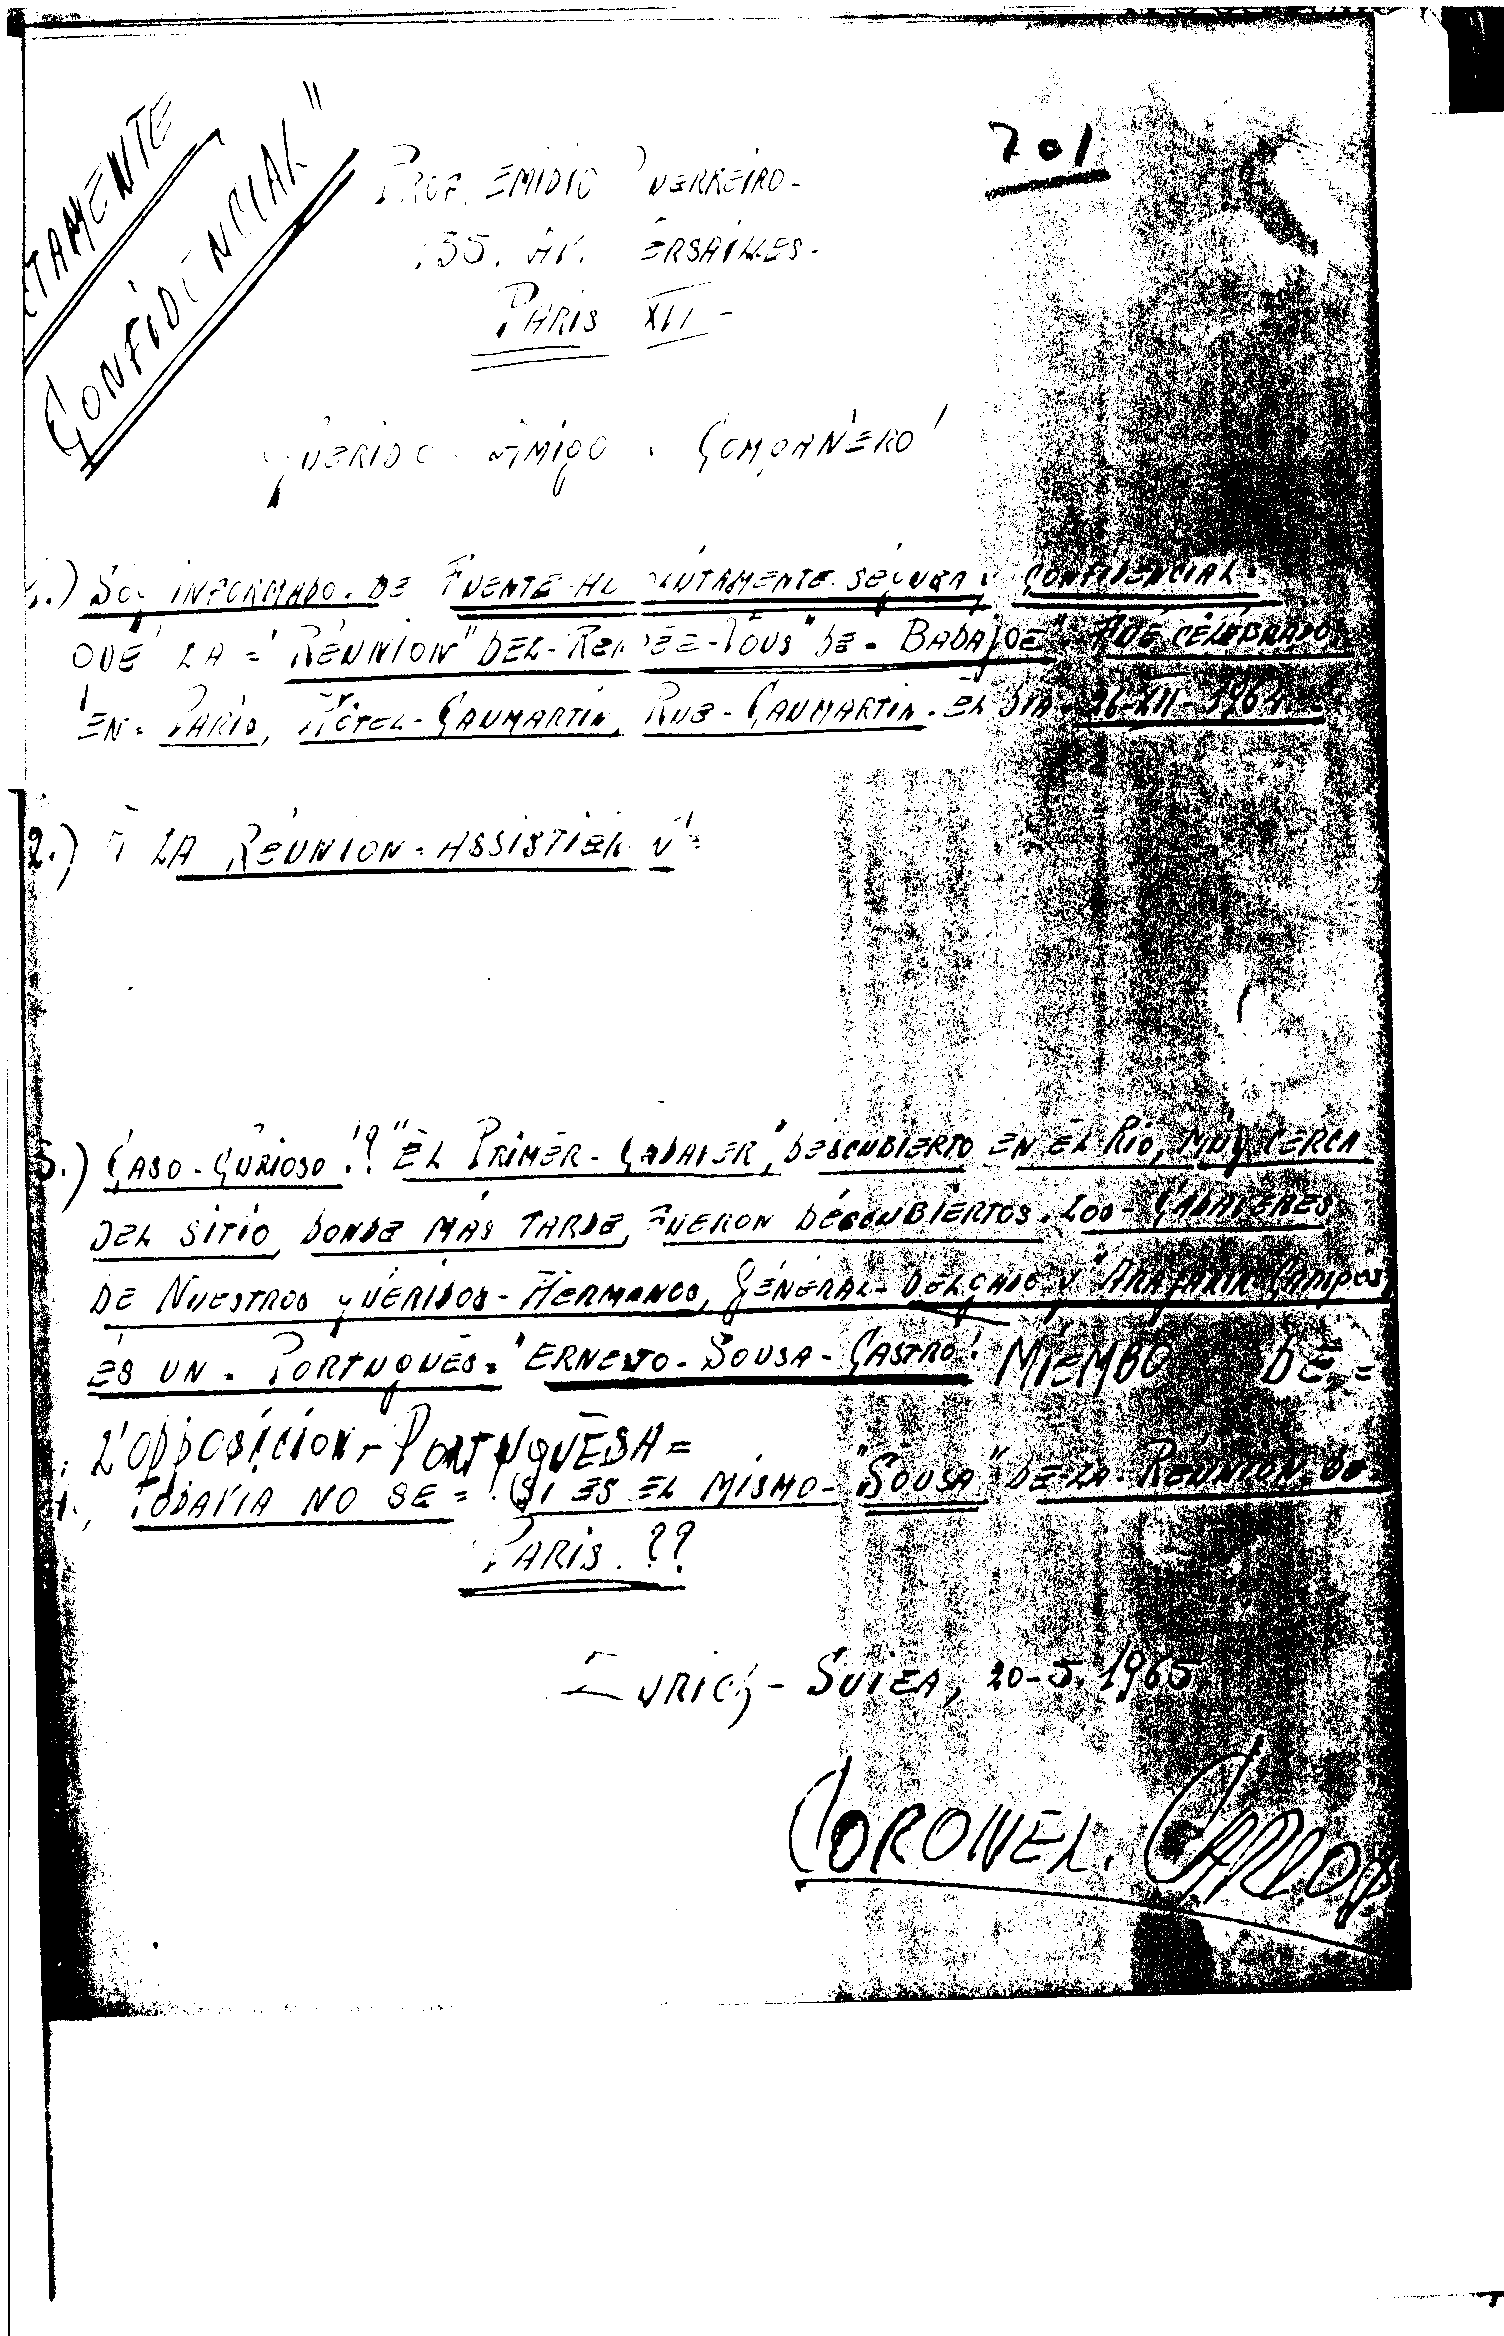 TAMENTE
CONFIDENCIAL"
201
PROF. EMIDIO GUERREIRO-
55. AV. VERSAILLES-
PARIS XVI-
QUERIDO AMIGO COMPAÑERO!
1.) SOY INFORMADO DE FUENTE ABSOLUTAMENTE SEGURA Y CONFIDENCIAL.
QUÉ LA = "REUNION" DEL-RENDÉE-VOUS" DE- BADAJOE" FUÉ CELEBRADO
EN- PARIS, HOTEL-CAUMARTIN, RUE-CAUMARTIN. EL DIA 26-XII-1964
2.) A LA REUNION-ASSISTIERUN=
3.) CASO-CURIOSO!? "EL PRIMER-CADAVER," DESCUBIERTO EN EL RIO, MUY CERCA
DEL SITIO DONDE MÁS TARDE, FUERON DECCUBIERTOS. LOS-CADAVERES
DE NUESTROS QUERIDOS-HERMANOS, GENERAL-DELGADO Y "ARAJARIR CAMPOS
ÉS UN- PORTUGUES= "ERNESTO-SOUSA-CASTRO! MIEMBO DE=
L'OPPOSICION-PORTUGUÊSA=
4., TODAVIA NO SE= SI ES EL MISMO-"SOUSA" DE LA REUNION. DE
PARIS.??
ZURICH- SUIZA, 20-5.1965
CORONEL. CARLOS